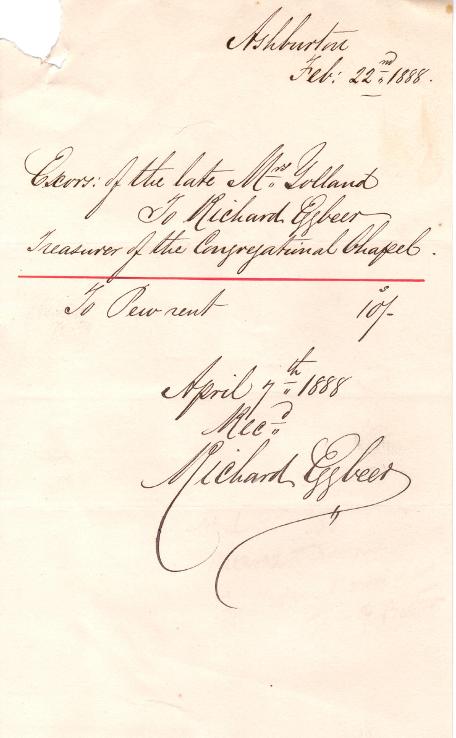 Ashburton
Feb: 22nd 1888.
Exors: of the late Mrs Yolland
To Richard Eggbeer
Treasurer of the Congregational Chapel.
s
To Pew rent 10/-
April 7th 1888
Recd
Richard Eggbeer